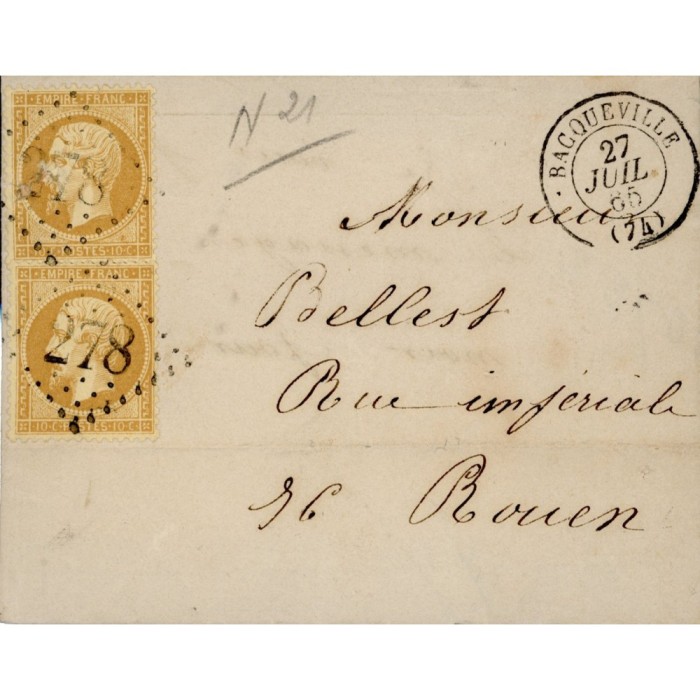 EMPIRE FRANC
278
10·C·POSTES·10·C
EMPIRE FRANC
278
10·C·POSTES·10·C
N 21
BACQUEVILLE
27
JUIL
65
(74)
Monsieur
Bellest
Rue impériale
76 Rouen